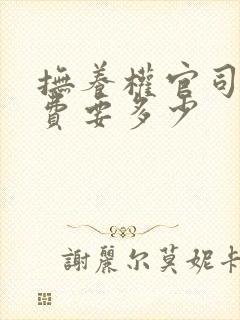 撫養權官司
費要多少
謝麗尔莫妮卡